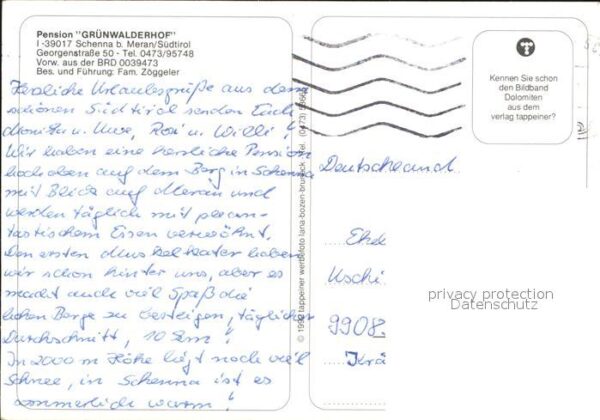 Pension "GRÜNWALDERHOF"
I-39017 Schenna b. Meran/Südtirol
Georgenstraße 50 - Tel. 0473/95748
Vorw. aus der BRD 0039473
Bes. und Führung: Fam. Zöggeler
Herzliche Urlaubsgrüße aus dem
schönen Südtirol senden Euch
Monika u. Uwe, Rosi u. Willi!
Wir haben eine herrliche Pension
hoch oben auf dem Berg in Schenna
mit Blick auf Meran und
werden täglich mit phan-
tastischem Essen verwöhnt.
Den ersten Muskelkater haben
wir schon hinter uns, aber es
macht auch viel Spaß die
hohen Berge zu besteigen, täglicher
Durchschnitt, 10 km!
In 2000 m Höhe liegt noch viel
Schnee, in Schenna ist es
sommerlich warm!
© 1992 tappeiner werbefoto lana-bozen-bruneck Tel. (0473)
Kennen Sie schon
den Bildband
Dolomiten
aus dem
verlag tappeiner?
Deutschland
Ehe
Uschi
9908
Krä
privacy protection
Datenschutz